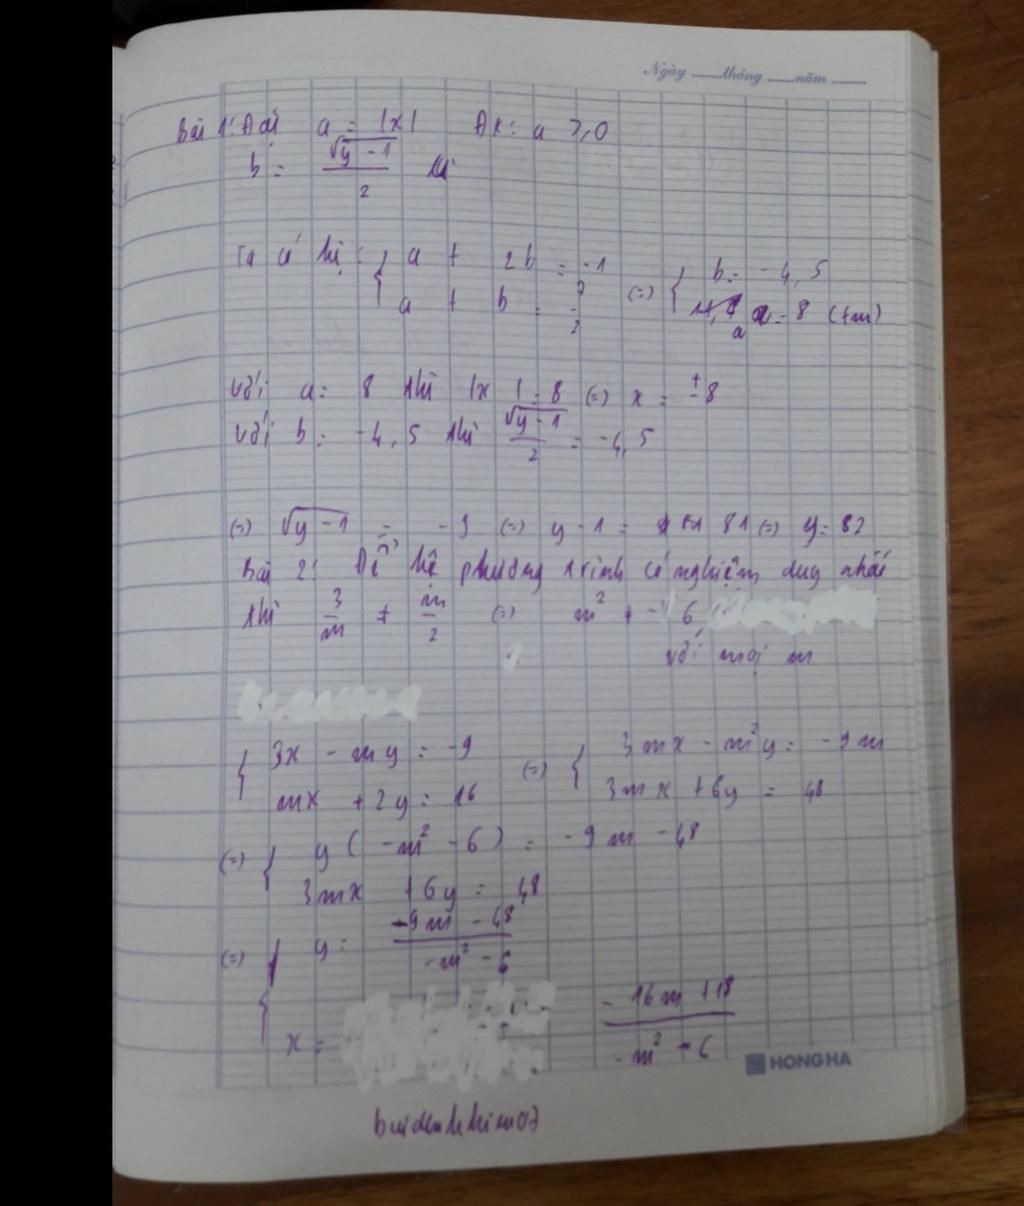 Ngày ........tháng .......năm .........
Bài 1: Đặt a = |x| ĐK: a ≥ 0
b = √(y - 1) / 2 thì
Ta có hệ: { a + 2b = -1
a + b = 7/2 (=) { b = -4,5
a = 8 (tm)
Với a = 8 thì |x| = 8 (=) x = ±8
Với b = -4,5 thì √(y - 1) / 2 = -4,5
(=) √(y - 1) = -9 (=) y - 1 = 81 (=) y = 82
Bài 2: Để hệ phương trình có nghiệm duy nhất
thì 3/m ≠ -m/2 (=) m² ≠ -6
với mọi m
{ 3x - my = -9
mx + 2y = 16 (=) { 3mx - m²y = -9m
3mx + 6y = 48
(=) { y(-m² - 6) = -9m - 48
3mx + 6y = 48
(=) { y = (-9m - 48) / (-m² - 6)
x = (-16m + 18) / (-m² - 6)
HONG HA
buidanhkhiem07